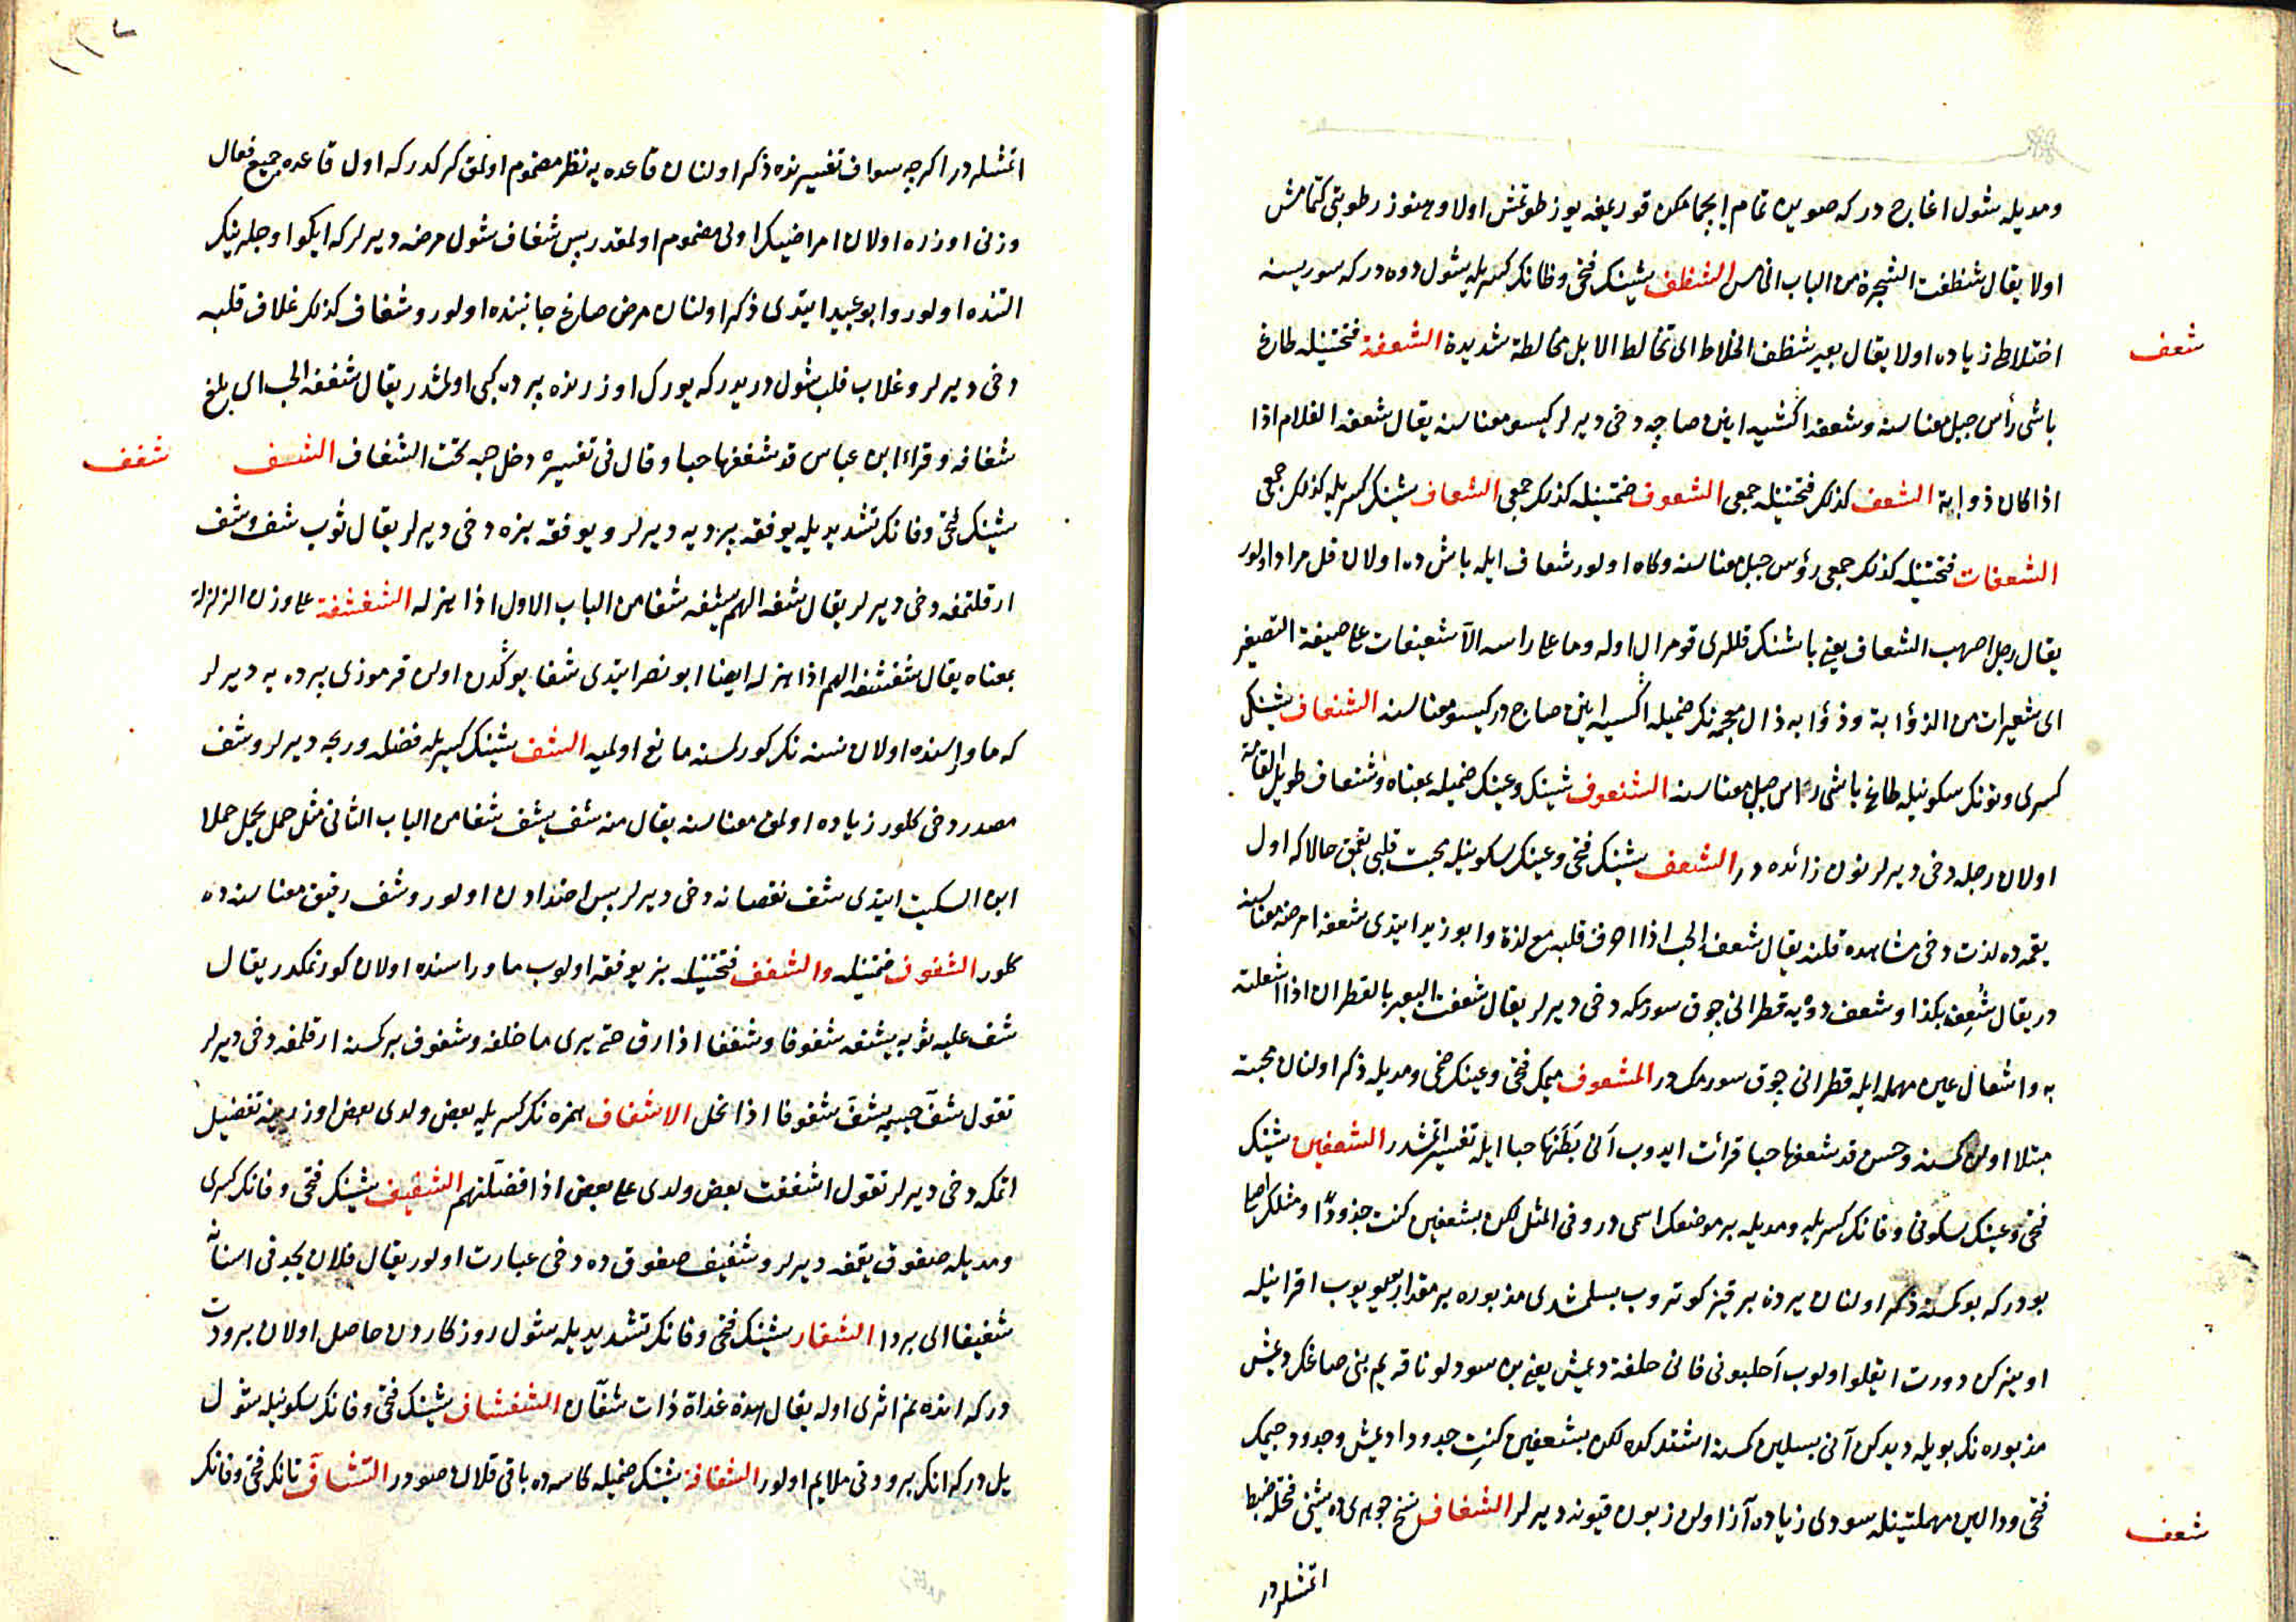 ومديله شول اغاجدر كه صويى تمام ايچمامكدن قوريمغه يوز طوتمش اولا وهنوز رطوبتى كتمامش
اولا يقال شظفت الشجرة من الباب الخامس الشظف شينك فتحى وظانك كسريله شول دوه در كه سوريسنه
شعف
اختلاطى زياده اولا يقال بعير شظف الخلاط اى يخالط الابل مخالطة شديدة الشعفة فتحتينله طاغ
باشى رأس جبل معناسنه وشعفه اكسيه اينن صاچه دخى ديرلر كيسو معناسنه يقال شعفه الغلام اذا
اذا كان ذوابة الشعف كذلك فتحتينله جمعى الشعوف ضمتينله كذلك جمعى الشعاف شينك كسريله كذلك جمعى
الشعفات فتحتينله كذلك جمعى رؤس جبل معناسنه وكاه اولور شعاف ايله باش ده اولان قل مراد اولور
يقال رجل اصهب الشعاف يعنى باشنك قللرى قومرال اوله وما على راسه الا شعيفات على صيغة التصغير
اى شعيرات من الذؤابة وذؤابه ذال معجمه نك ضميله اكسيه اينن صاچ در كيسو معناسنه الشنعاف شينك
كسرى ونونك سكونيله طاغ باشى راس جبل معناسنه الشنعوف شينك وعينك ضميله بمعناه وشنعاف طويل القامة
اولان رجله دخى ديرلر نون زائده در الشعف شينك فتحى وعينك سكونيله محبت قلبى يقمق حالا كه اول
يقمه ده لذت دخى مشاهده قلنه يقال شعفه الحب اذا احرق قلبه مع لذة وابو زيد ايتدى شعفه امرضه معناسنه
در يقال شعف بكذا وشعف دوه يه قطرانى چوق سورمكه دخى ديرلر يقال شعفت البعير بالقطران اذا اشعلته
به واشعال عين مهمله ايله قطرانى چوق سورمك در المشعوف ميمك فتحى وعينك ضمى ومديله ذكر اولنان محبته
مبتلا اولان كسنه وحسن قد شعفها حبا قرائت ايدوب آنى بطنها حبا ايله تفسير اتمشدر الشعفين شينك
فتحى وعينك سكونى وفانك كسريله ومديله بر موضعك اسمى در وفى المثل لكن بشعفين كنت جدودا ومثلك اصلى
بودر كه بو كسنه ذكر اولنان يرده بر قيز كوتروب بسلمشدى مذبوره بر مقدار بيويوب اقرانيله
اوينركن دورت ايقلو اولوب احلبونى فانى خلفة ديمش يعنى بن سودلو ناقه يم بنى صاغك ديمش
مذبوره نك بويله ديدكن آنى بسلين كسنه اشتدكده لكن بشعفين كنت جدودا ديمش وجدود جيمك
شغف
فتحى ودالين مهملتينله سودى زياده آز اولان زبون قيونه ديرلر الشغاف نسخ جوهرى ده شينى فتحله ضبط
اتمشلردر
١١٢
اتمشلردر اكرچه سواف تفسيرنده ذكر اولنان قاعده يه نظر مضموم اولمق كركدر كه اول قاعده جميع فعال
وزنى اوزره اولان امراضك اولى مضموم اولمقدر پس شغاف شول مرضه ديرلر كه ايكو اوجلرينك
التنده اولور وابو عبيد ايتدى ذكر اولنان مرض صاغ جانبنده اولور وشغاف كذلك غلاف قلبه
دخى ديرلر وغلاف قلب شول دريدر كه يورك اوزرنده پرده كبى اولمشدر يقال شغفه الحب اى بلغ
شغافه وقراء ابن عباس قد شغفها حبا وقال فى تفسيره دخل حبه تحت الشغاف الشف
شفف
شينك فتحى وفانك تشديديله يوفقه پرديه ديرلر ويوفقه بزه دخى ديرلر يقال ثوب شف وشف
ارقلتمغه دخى ديرلر يقال شفه الهم يشفه شفا من الباب الاول اذا هزله الشفشفة على وزن الزلزلة
بمعناه يقال شفشفه الهم اذا هزله ايضا ابو نصر ايتدى شفا يوكدن اولان قرموزى پرده يه ديرلر
كه ماوراسنده اولان نسنه نك كورلمسنه مانع اولميه الشف شينك كسريله فضله وربحه ديرلر وشف
مصدر دخى كلور زياده اولمق معناسنه يقال منه شف يشف شفا من الباب الثانى مثل حمل يحمل حملا
ابن السكيت ايتدى شف نقصانه دخى ديرلر پس اضداددن اولور وشف رقيق معناسنده
كلور الشفوف ضمتينله والشفف فتحتينله بز يوفقه اولوب ماوراسنده اولان كورنمكدر يقال
شف عليه ثوبه يشف شفوفا وشففا اذا رق حتى يرى ما خلفه وشفوف بر كسنه ارقلمغه دخى ديرلر
تقول شف جسمه يشف شفوفا اذا نحل الاشفاف همزه نك كسريله بعض ولدى بعض اوزرينه تفضيل
اتمكه دخى ديرلر تقول اشففت بعض ولدى على بعض اذا فضلتهم الشفيف شينك فتحى وفانك كسرى
ومديله صغوق يقمغه ديرلر وشفيف صغوق ده دخى عبارت اولور يقال فلان يجد فى اسنانه
شفيفا اى بردا الشفان شينك فتحى وفانك تشديديله شول روزكاردن حاصل اولان برودت
در كه انده نم اثرى اوله يقال هذه غداة ذات شفان الشفشاف شينك فتحى وفانك سكونيله شول
يل در كه انك برودتى ملايم اولور الشفافة شينك ضميله كاسه ده باقى قلان صودر التشاف تانك فتحى وفانك